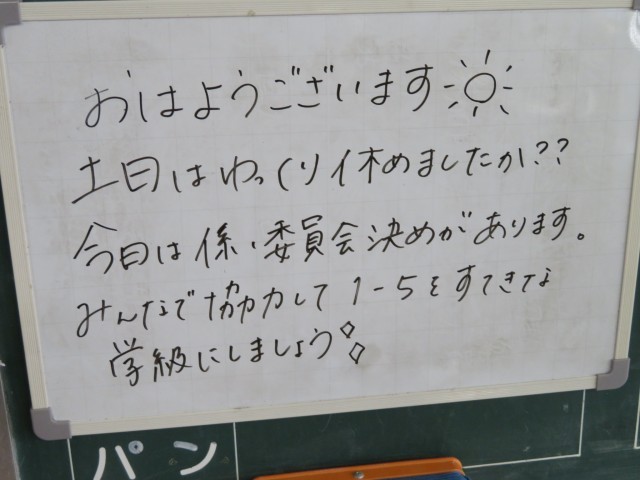 おはようございます
土日はゆっくり休めましたか??
今日は係・委員会決めがあります。
みんなで協力して1-5をすてきな
学級にしましょう
パン